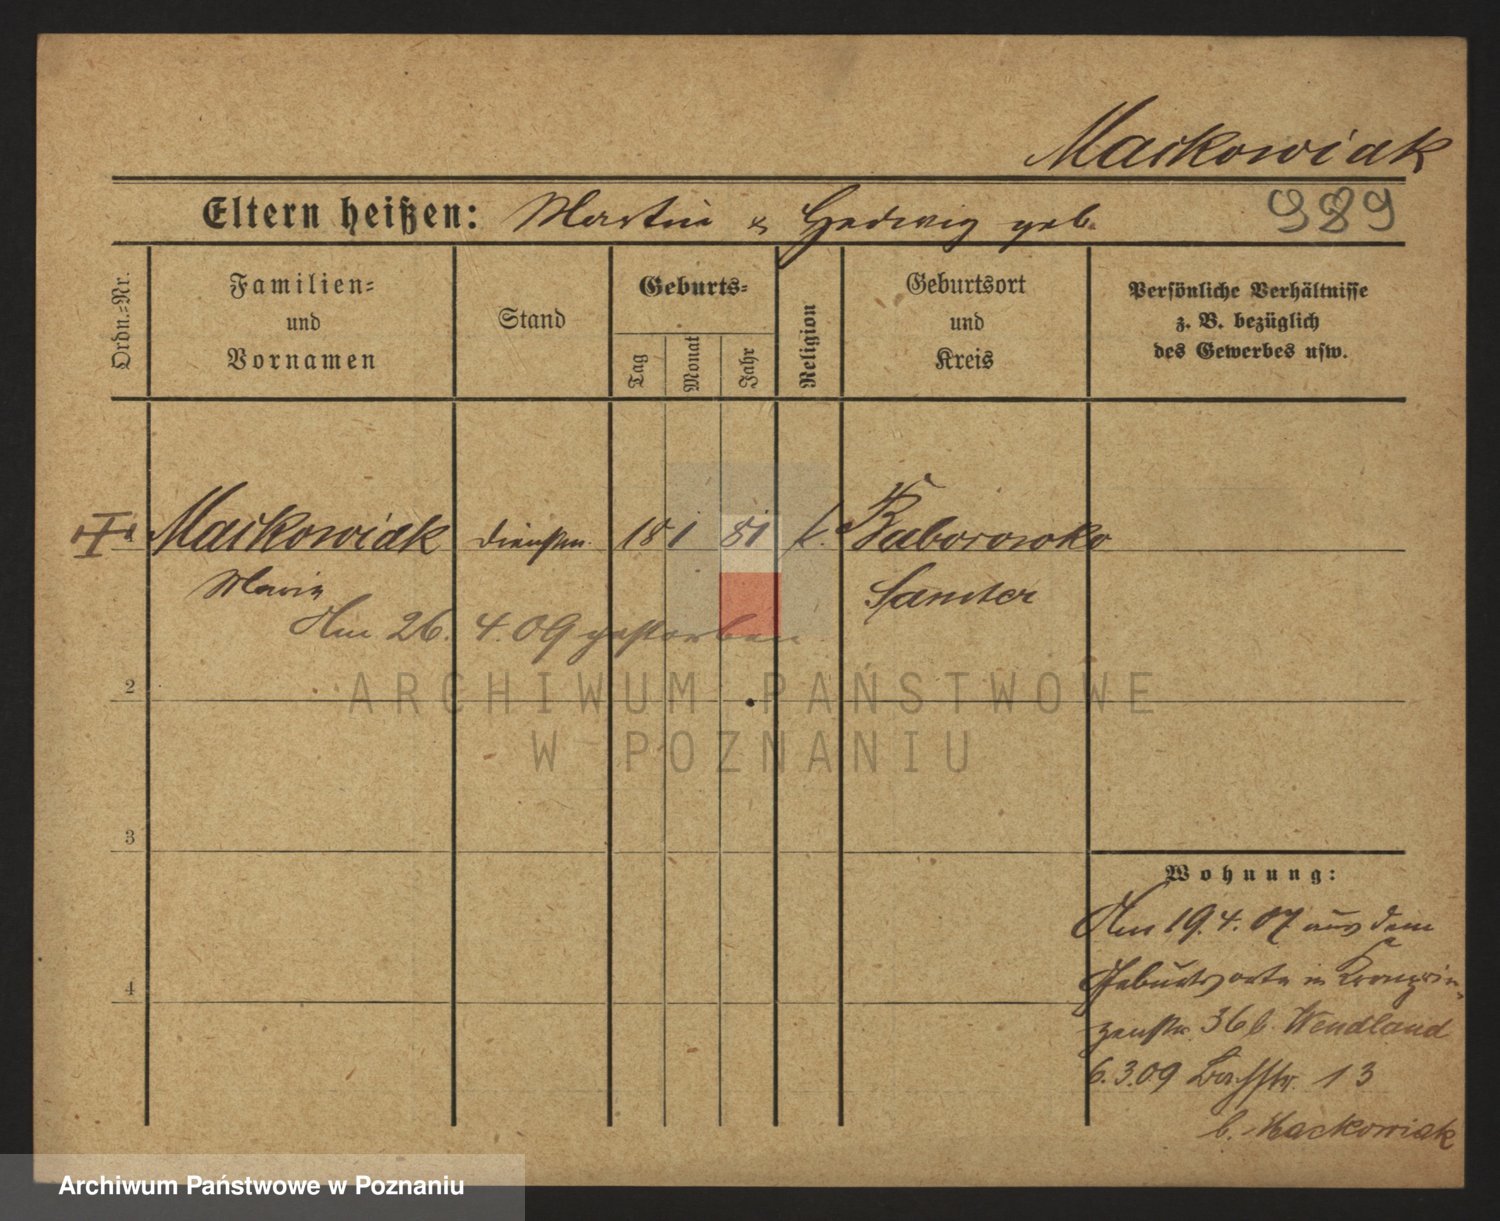 Maćkowiak
Eltern heißen: Martin & Hedwig geb.
989
Ordn.-Nr.
Familien-
und
Vornamen
Stand
Geburts-
Tag
Monat
Jahr
Religion
Geburtsort
und
Kreis
Persönliche Verhältnisse
z. B. bezüglich
des Gewerbes usw.
Maćkowiak dienstm. 18 1 81 k. Baborowko
Marie Samter
Am 26. 4. 09 gestorben
2
ARCHIWUM PAŃSTWOWE
W POZNANIU
3
4
Wohnung:
Am 19. 4. 07 aus dem
Geburtsorte in Kronprin-
zenstr. 36 b. Wendland
6. 3. 09 Bachstr. 13
b. Mackowiak
Archiwum Państwowe w Poznaniu